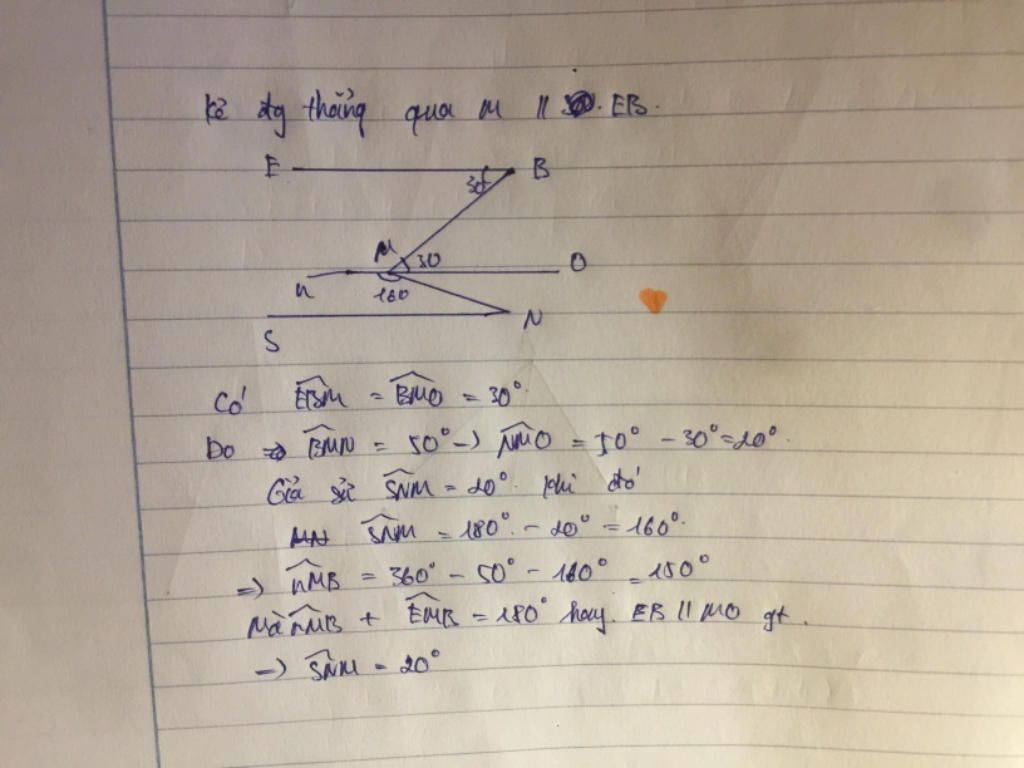 Kẻ đg thẳng qua M // EB.
E B
30°
M 30 O
n 160
S N
Có EBM = BMO = 30°.
Do BMN = 50° → NMO = 50° - 30° = 20°.
Giả sử SNM = 20°. Khi đó
SNM = 180° - 20° = 160°.
⇒ nMB = 360° - 50° - 160° = 150°
Mà nMB + EMB = 180° hay. EB // MO gt.
→ SNM = 20°